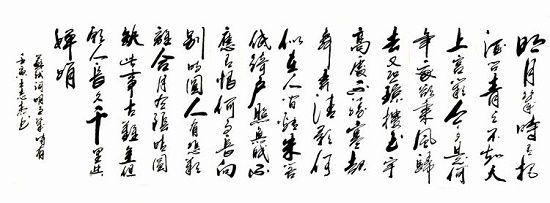 明月幾時有把
酒問青天不知天
上宮闕今夕是何
年我欲乘風歸
去又恐瓊樓玉宇
高處不勝寒起
舞弄清影何
似在人間轉朱閣
低綺戶照無眠不
應有恨何事長向
別時圓人有悲歡
離合月有陰晴圓
缺此事古難全但
願人長久千里共
嬋娟
蘇軾詞明月幾時有